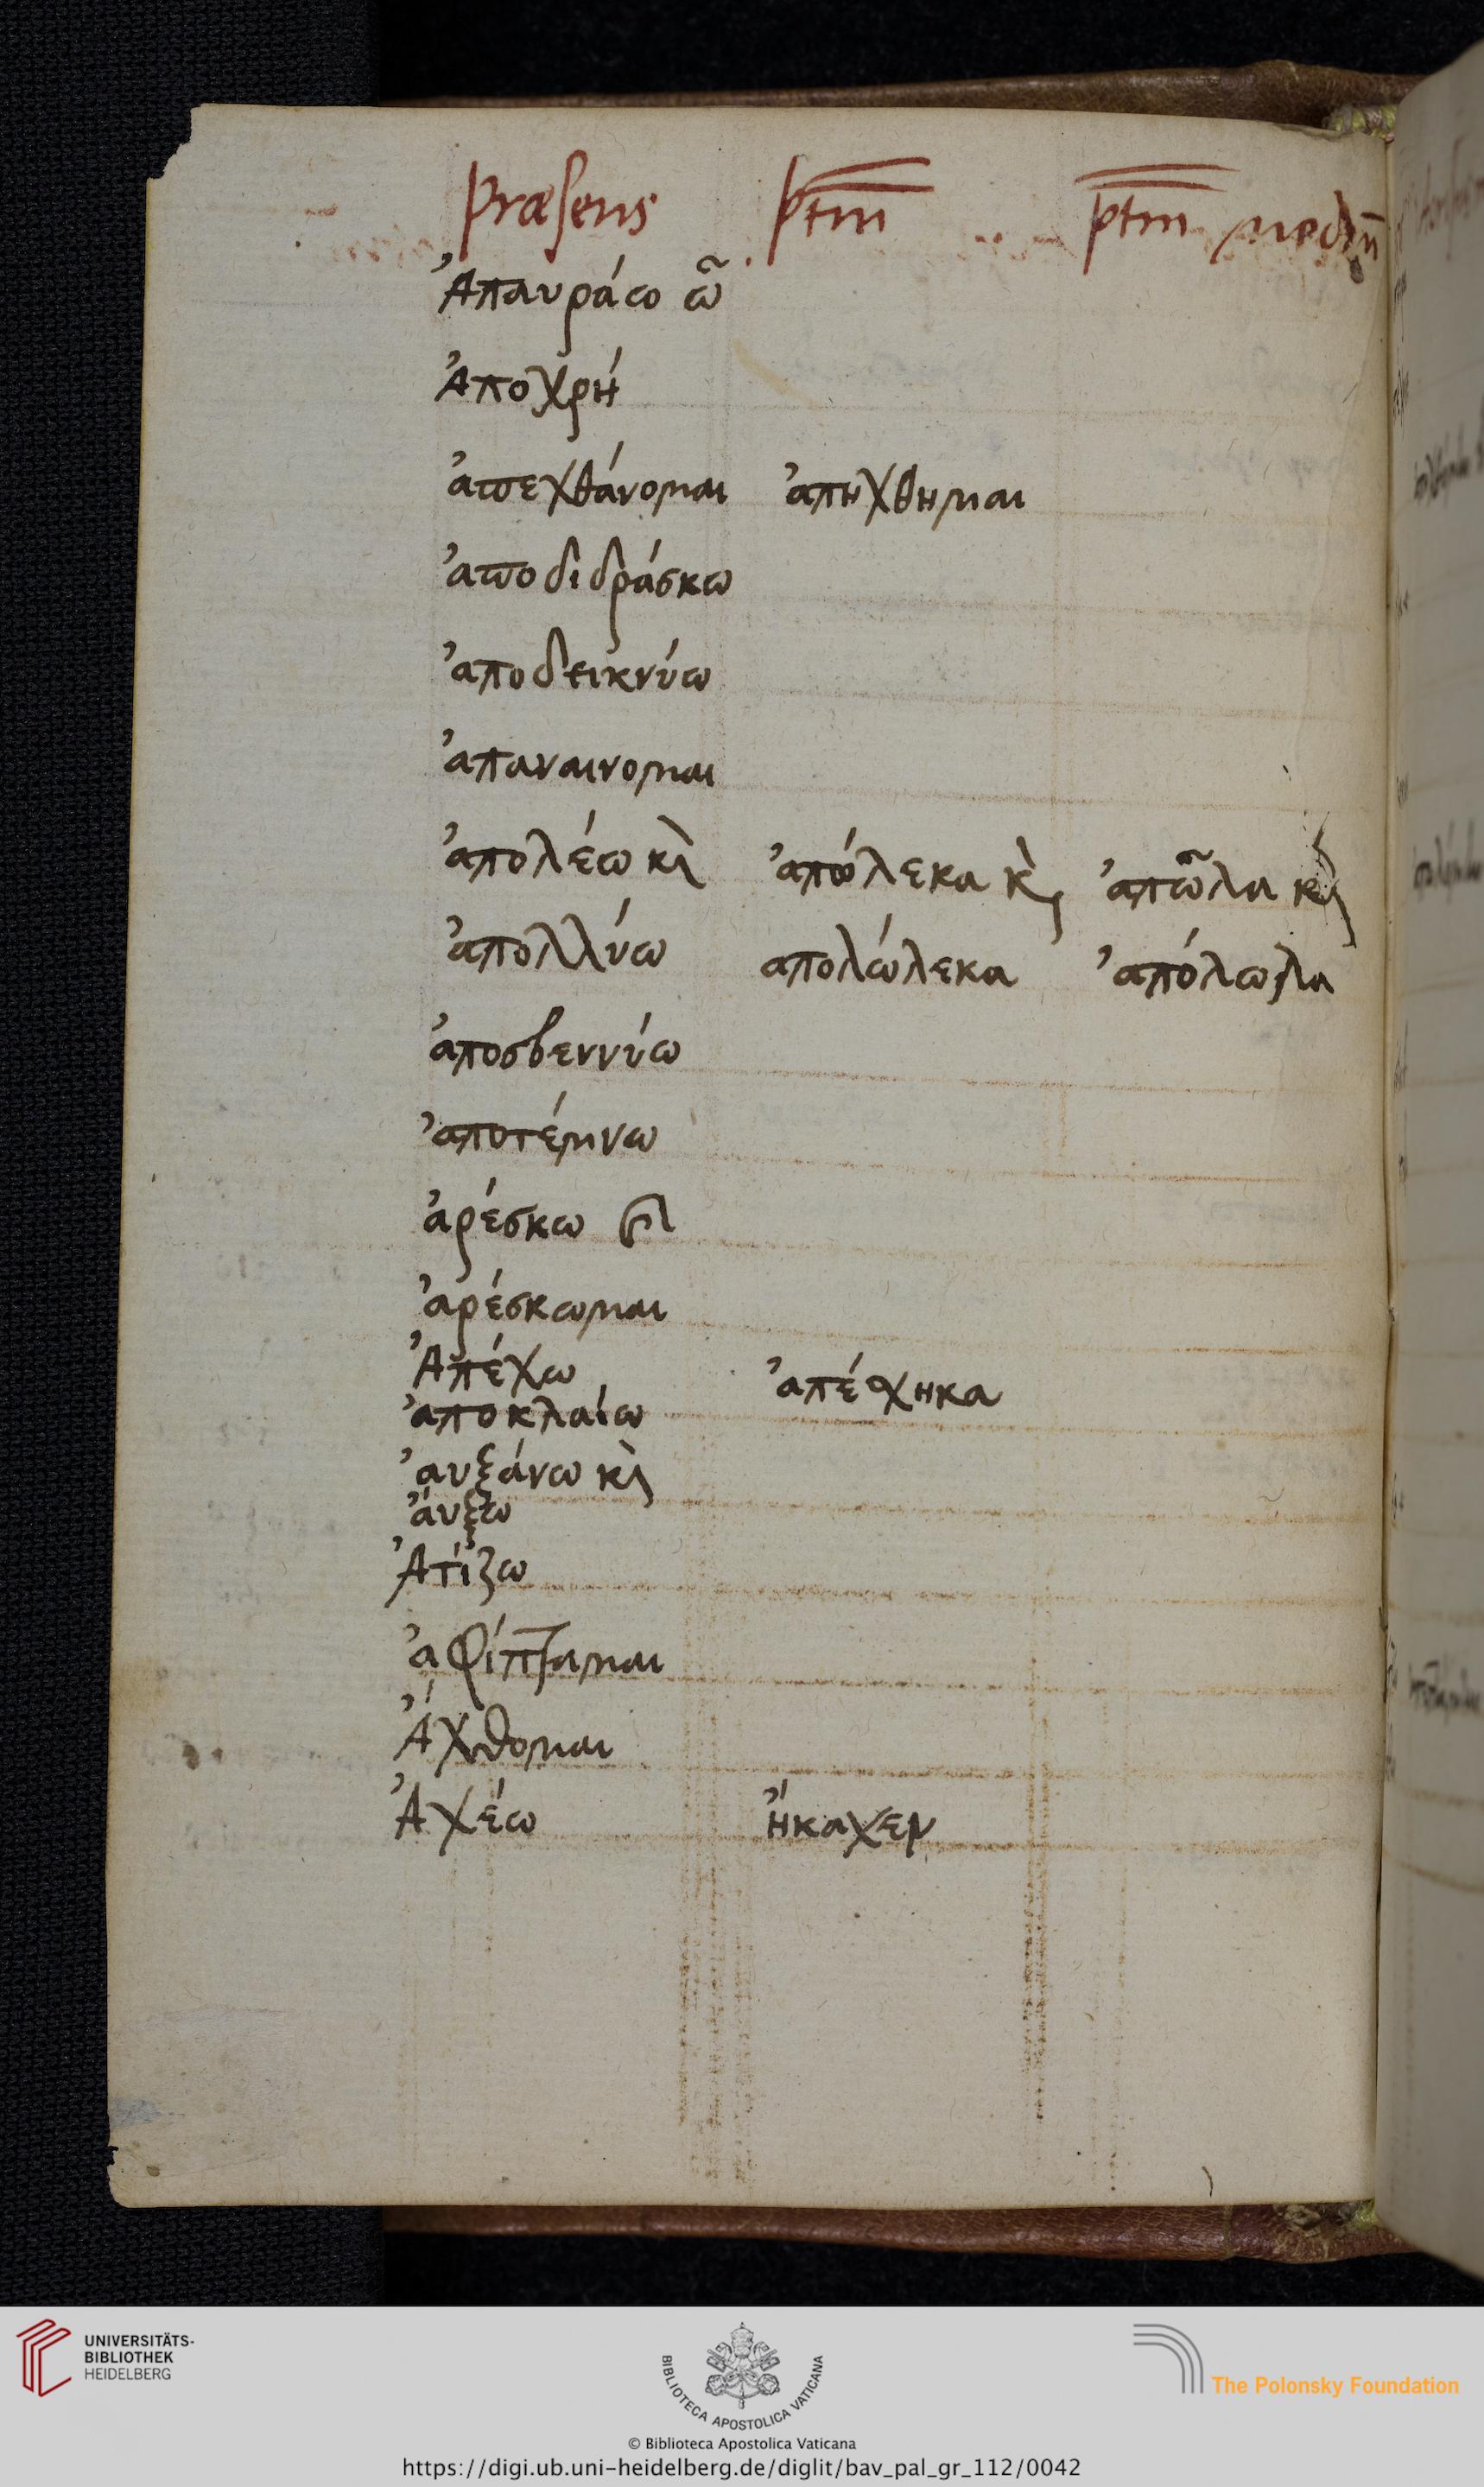 præsens ptm ptm mediũ
Ἀπαυράω ῶ
Ἀποχρή
ἀπεχθάνομαι ἀπηχθημαι
ἀποδιδράσκω
ἀποδεικνύω
ἀπαναινομαι
ἀπολέω κὶ ἀπώλεκα κὶ ἀπῶλα κὶ
ἀπολλύω απολώλεκα ἀπόλωλα
ἀποσβεννύω
ἀποτέμνω
ἀρέσκω
ἀρέσκωμαι
Ἀπέχω ἀπέσχηκα
ἀποκλαίω
ἀυξάνω κὶ
ἄυξω
Ἀτίζω
ἀφίπταμαι
Ἄχθομαι
Ἀχέω ἤκαχεν
UNIVERSITÄTS-
BIBLIOTHEK
HEIDELBERG
BIBLIOTECA APOSTOLICA VATICANA
The Polonsky Foundation
© Biblioteca Apostolica Vaticana
https://digi.ub.uni-heidelberg.de/diglit/bav_pal_gr_112/0042